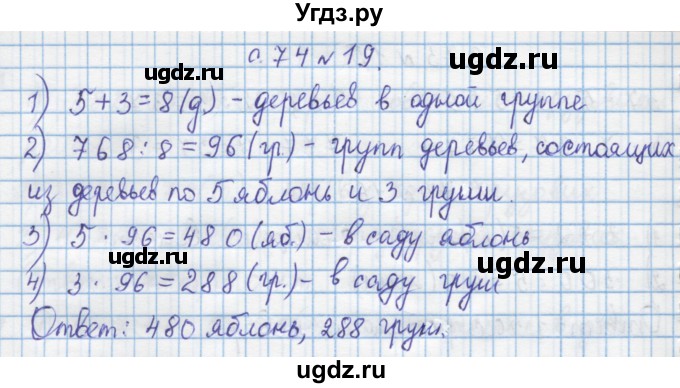 Угдз.ру
с. 74 № 19.
1) 5 + 3 = 8 (д) - деревьев в одной группе
2) 768 : 8 = 96 (гр.) - групп деревьев, состоящих
из деревьев по 5 яблонь и 3 груши.
3) 5 · 96 = 480 (яб.) - в саду яблонь
4) 3 · 96 = 288 (гр.) - в саду груш
Ответ: 480 яблонь, 288 груш.
ugdz.ru ugdz.ru
ugdz.ru ugdz.ru
ugdz.ru ugdz.ru
ugdz.ru ugdz.ru
Угдз.ру